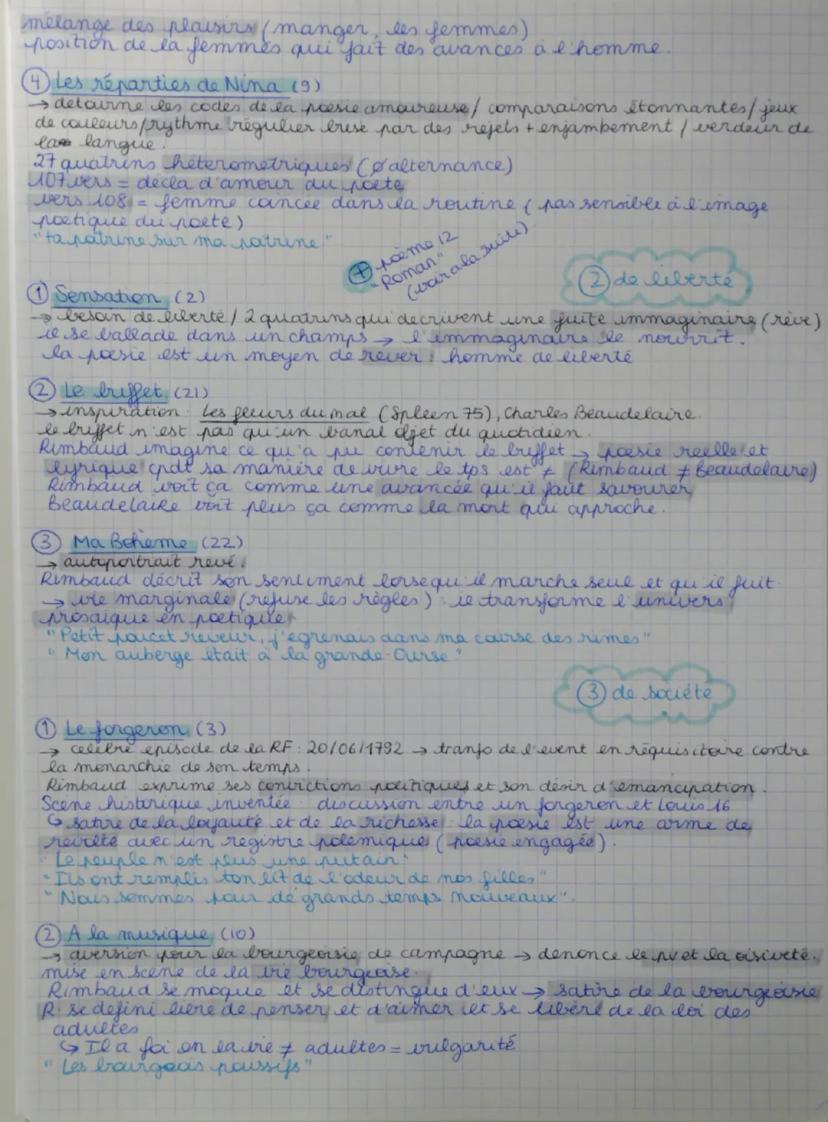 mélange des plaisirs (manger, les femmes)
position de la femmes qui fait des avances à l'homme.
④ Les réparties de Nina (9)
→ detourne les codes de la poésie amoureuse / comparaisons étonnantes / jeux
de couleurs / rythme régulier brisé par des rejets + enjambement / verdeur de
la langue.
27 quatrins hétérométriques (∅ alternance)
107 vers = décla d'amour du poète
vers 108 = femme cancée dans la routine (pas sensible à l'image
poetique du poète)
"ta poitrine sur ma poitrine"
⊕ poème 12
"Roman"
(voir à la suite)
② de liberté
① Sensation (2)
→ besoin de liberté / 2 quatrins qui decrivent une fuite immaginaire (rêve)
il se ballade dans un champs → l'immaginaire le nourrit.
la poésie est un moyen de rêver : homme de liberté
② Le buffet (21)
→ inspiration : Les fleurs du mal (Spleen 75), Charles Beaudelaire.
le buffet n'est pas qu'un banal objet du quotidien.
Rimbaud imagine ce qu'a pu contenir le buffet → poesie réelle et
lyrique cpdt sa manière de vivre le tps est ≠ (Rimbaud ≠ Beaudelaire)
Rimbaud voit ça comme une avancée qu'il faut savourer
Beaudelaire voit plus ça comme la mort qui approche.
③ Ma Bohème (22)
→ autoportrait revé.
Rimbaud décrit son sentiment lorsequ'il marche seul et qu'il fuit
→ vie marginale (refuse les règles) : il transforme l'univers
prosaïque en poétique
"Petit poucet reveur, j'egrenais dans ma course des rimes"
"Mon auberge était à la grande-Ourse"
③ de société
① Le forgeron (3)
→ celèbre épisode de la RF : 20/06/1792 → transfo de l'event en réquisitoire contre
la monarchie de son temps.
Rimbaud exprime ses convictions politiques et son désir d'émancipation.
Scene historique inventée : discussion entre un forgeron et Louis 16
↳ satire de la loyauté et de la richesse : la poesie est une arme de
révolte avec un registre polémique (poesie engagée).
"Le peuple n'est plus une putain"
"Ils ont remplis ton lit de l'odeur de nos filles"
"Nous sommes pour de grands temps nouveaux".
② A la musique (10)
→ aversion pour la bourgeoisie de campagne → denonce le pv et la oisiveté.
mise en scène de la vie bourgeoise.
Rimbaud se moque et se distingue d'eux → satire de la bourgeoisie
R. se defini libre de penser et d'aimer et se libère de la loi des
adultes
↳ Il a foi en la vie ≠ adultes = vulgarité
"Les bourgeois poussifs"